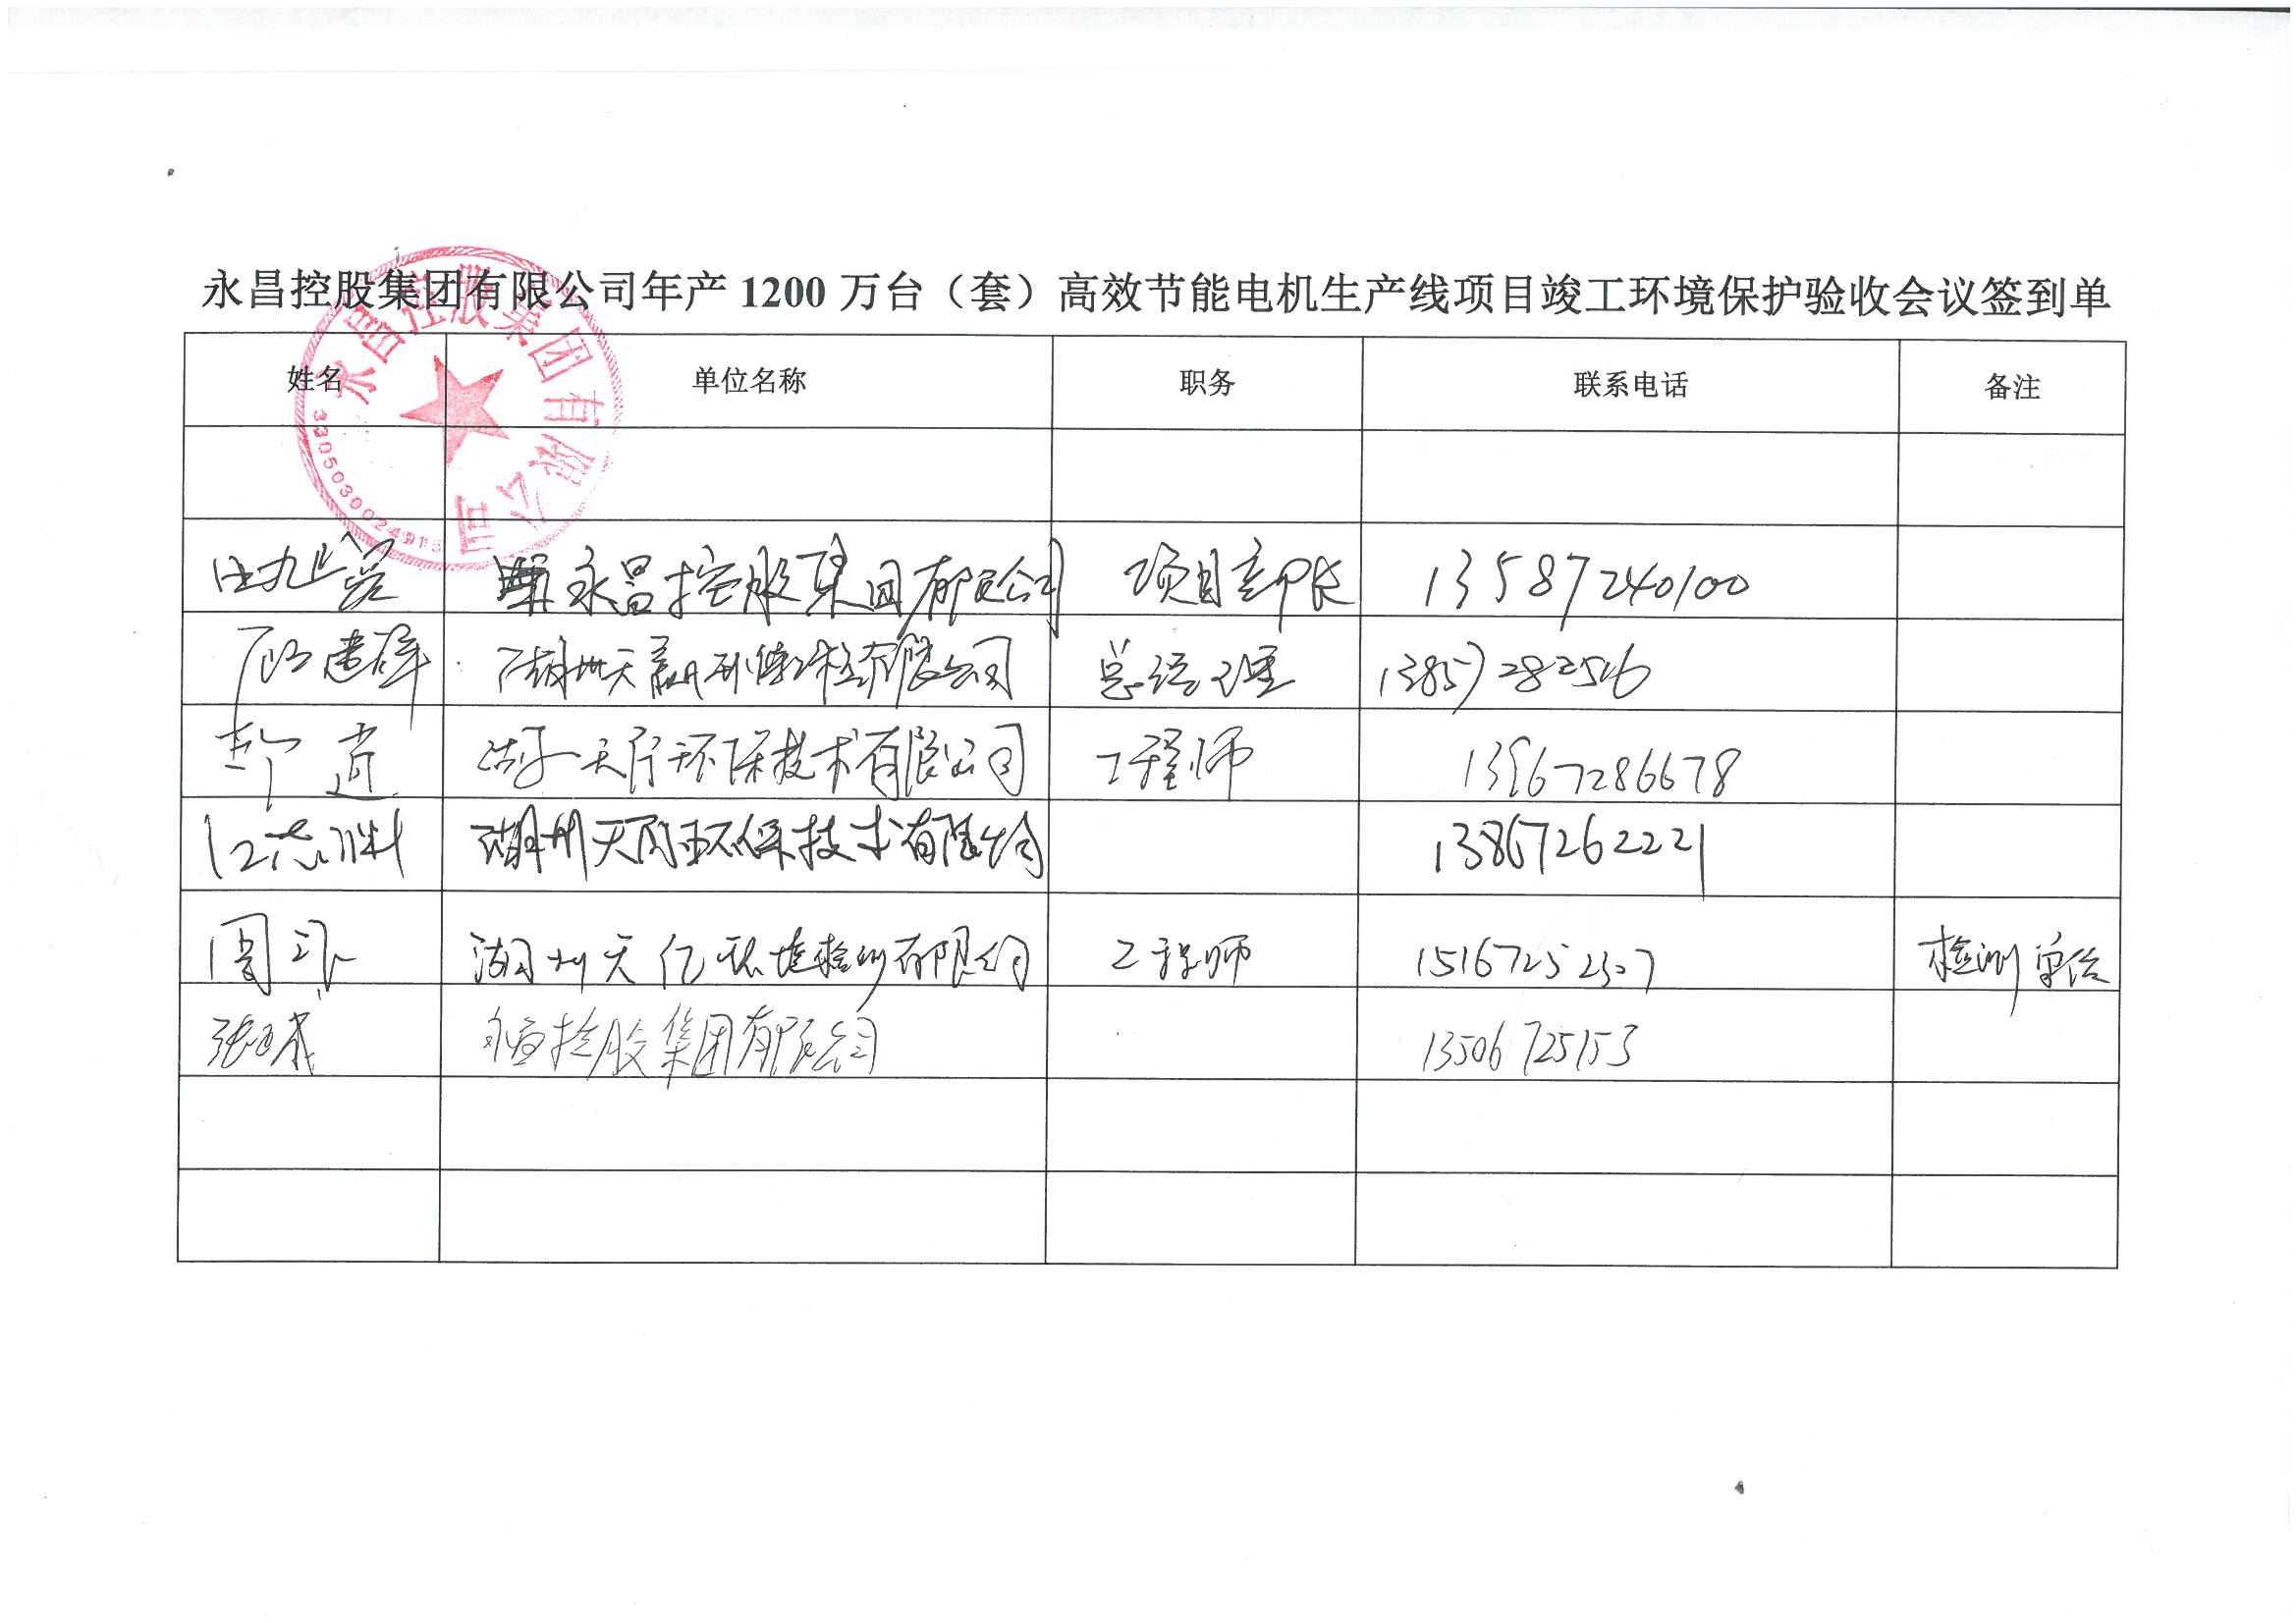 永昌控股集团有限公司年产 1200 万台（套）高效节能电机生产线项目竣工环境保护验收会议签到单
永昌控股集团有限公司
3305030024915
姓名 单位名称 职务 联系电话 备注
永昌控股集团有限公司 项目部长 13587240100
总经理 13857282516
环保技术有限公司 工程师 13967286678
湖州天 环保技术有限公司 13867262221
周 湖州天亿环境检测有限公司 工程师 15167252307 检测单位
张 控股集团有限公司 13506725153